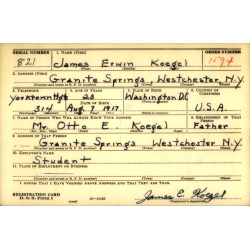 SERIAL NUMBER 1. NAME (Print) ORDER NUMBER
821 James Erwin Koegel 1594
2. ADDRESS (Print)
Granite Springs, Westchester, N.Y.
3. TELEPHONE 4. AGE IN YEARS 5. PLACE OF BIRTH 6. COUNTRY OF
Yorktown Hgts 23 Washington D.C.
DATE OF BIRTH
314 Aug. 7, 1917 U.S.A.
7. NAME OF PERSON WHO WILL ALWAYS KNOW YOUR ADDRESS 8. RELATIONSHIP OF THAT PERSON
Mr. Otto E. Koegel Father
9. ADDRESS OF THAT PERSON
Granite Springs Westchester N.Y.
10. EMPLOYER'S NAME
Student
11. PLACE OF EMPLOYMENT OR BUSINESS
I AFFIRM THAT I HAVE VERIFIED ABOVE ANSWERS AND THAT THEY ARE TRUE.
REGISTRATION CARD
D. S. S. FORM 1
James E. Koegel